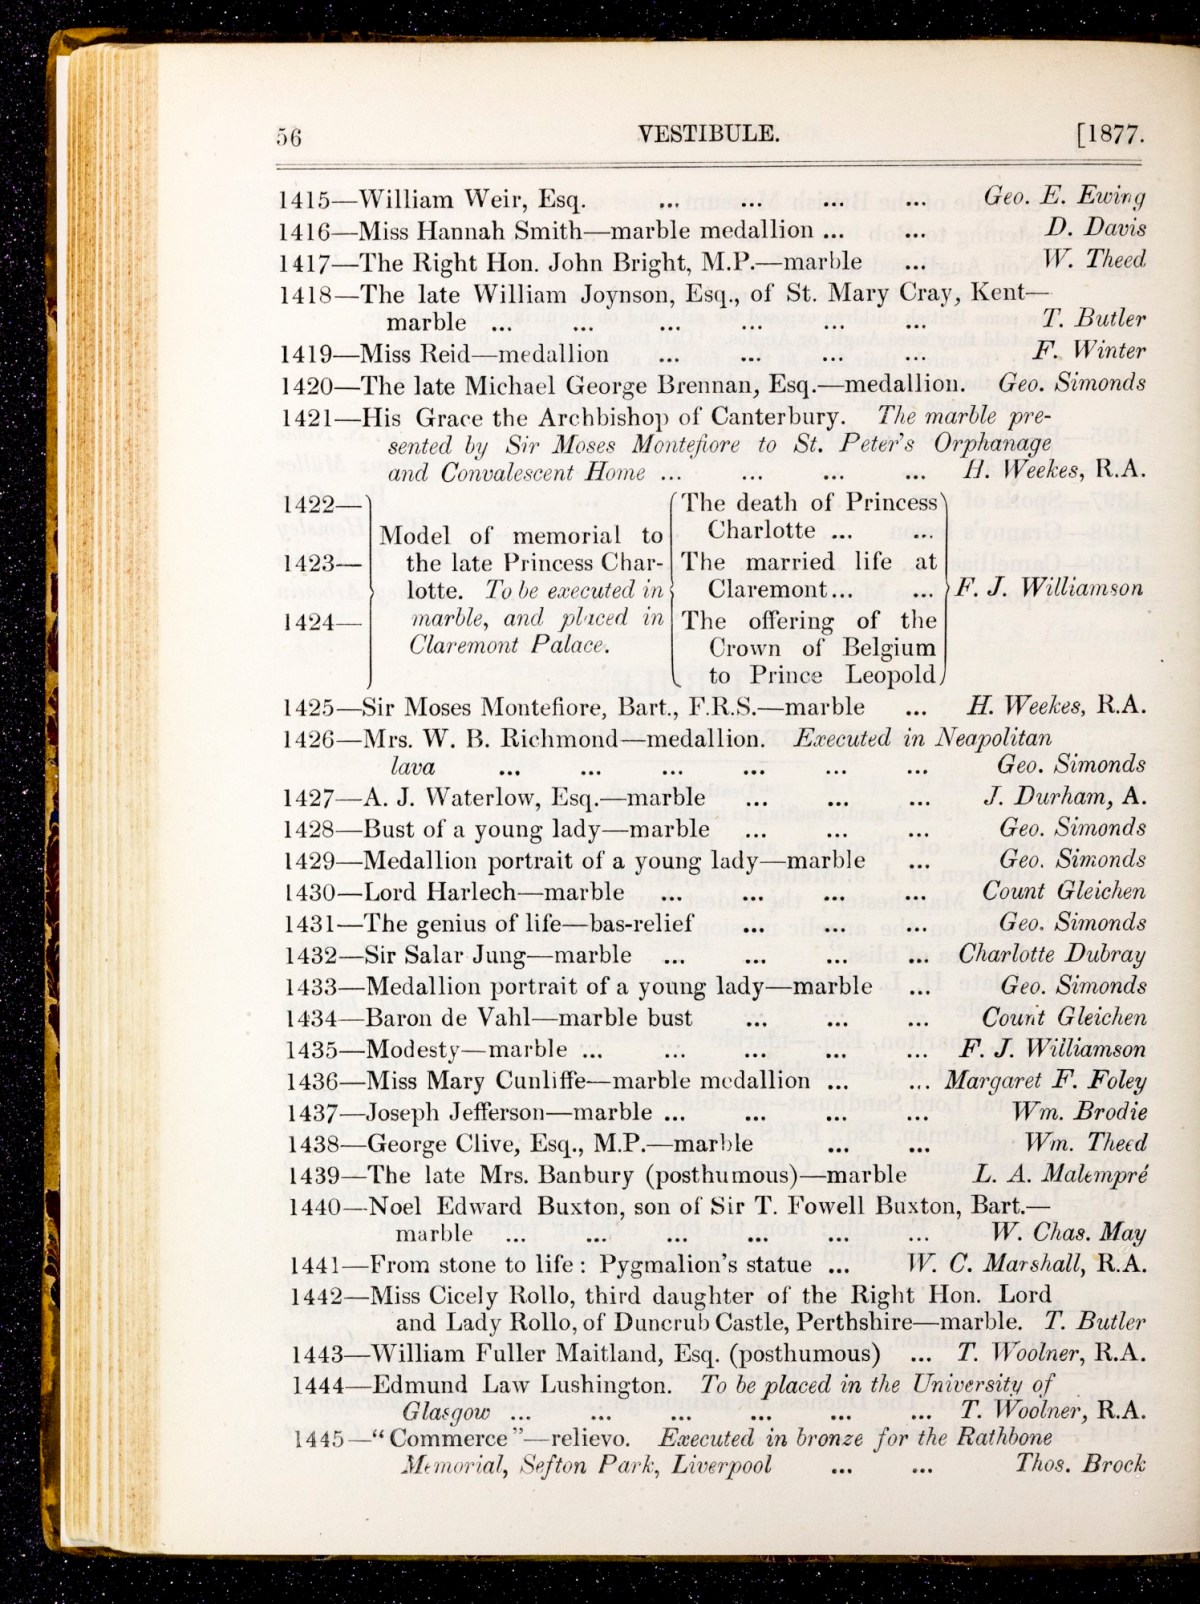 56 VESTIBULE. [1877.
1415—William Weir, Esq. ... ... ... ... Geo. E. Ewing
1416—Miss Hannah Smith—marble medallion ... ... D. Davis
1417—The Right Hon. John Bright, M.P.—marble ... W. Theed
1418—The late William Joynson, Esq., of St. Mary Cray, Kent—
marble ... ... ... ... ... ... T. Butler
1419—Miss Reid—medallion ... ... ... ... F. Winter
1420—The late Michael George Brennan, Esq.—medallion. Geo. Simonds
1421—His Grace the Archbishop of Canterbury. The marble pre-
sented by Sir Moses Montefiore to St. Peter's Orphanage
and Convalescent Home ... ... ... ... H. Weekes, R.A.
1422—
1423—
1424—
Model of memorial to
the late Princess Char-
lotte. To be executed in
marble, and placed in
Claremont Palace.
The death of Princess
Charlotte ... ...
The married life at
Claremont... ...
The offering of the
Crown of Belgium
to Prince Leopold
F. J. Williamson
1425—Sir Moses Montefiore, Bart., F.R.S.—marble ... H. Weekes, R.A.
1426—Mrs. W. B. Richmond—medallion. Executed in Neapolitan
lava ... ... ... ... ... ... Geo. Simonds
1427—A. J. Waterlow, Esq.—marble ... ... ... J. Durham, A.
1428—Bust of a young lady—marble ... ... ... Geo. Simonds
1429—Medallion portrait of a young lady—marble ... Geo. Simonds
1430—Lord Harlech—marble ... ... ... ... Count Gleichen
1431—The genius of life—bas-relief ... ... ... Geo. Simonds
1432—Sir Salar Jung—marble ... ... ... ... Charlotte Dubray
1433—Medallion portrait of a young lady—marble ... Geo. Simonds
1434—Baron de Vahl—marble bust ... ... ... Count Gleichen
1435—Modesty—marble ... ... ... ... ... F. J. Williamson
1436—Miss Mary Cunliffe—marble medallion ... ... Margaret F. Foley
1437—Joseph Jefferson—marble ... ... ... ... Wm. Brodie
1438—George Clive, Esq., M.P.—marble ... ... Wm. Theed
1439—The late Mrs. Banbury (posthumous)—marble L. A. Malempré
1440—Noel Edward Buxton, son of Sir T. Fowell Buxton, Bart.—
marble ... ... ... ... ... ... W. Chas. May
1441—From stone to life : Pygmalion's statue ... W. C. Marshall, R.A.
1442—Miss Cicely Rollo, third daughter of the Right Hon. Lord
and Lady Rollo, of Duncrub Castle, Perthshire—marble. T. Butler
1443—William Fuller Maitland, Esq. (posthumous) ... T. Woolner, R.A.
1444—Edmund Law Lushington. To be placed in the University of
Glasgow ... ... ... ... ... ... T. Woolner, R.A.
1445—“Commerce”—relievo. Executed in bronze for the Rathbone
Memorial, Sefton Park, Liverpool ... ... Thos. Brock